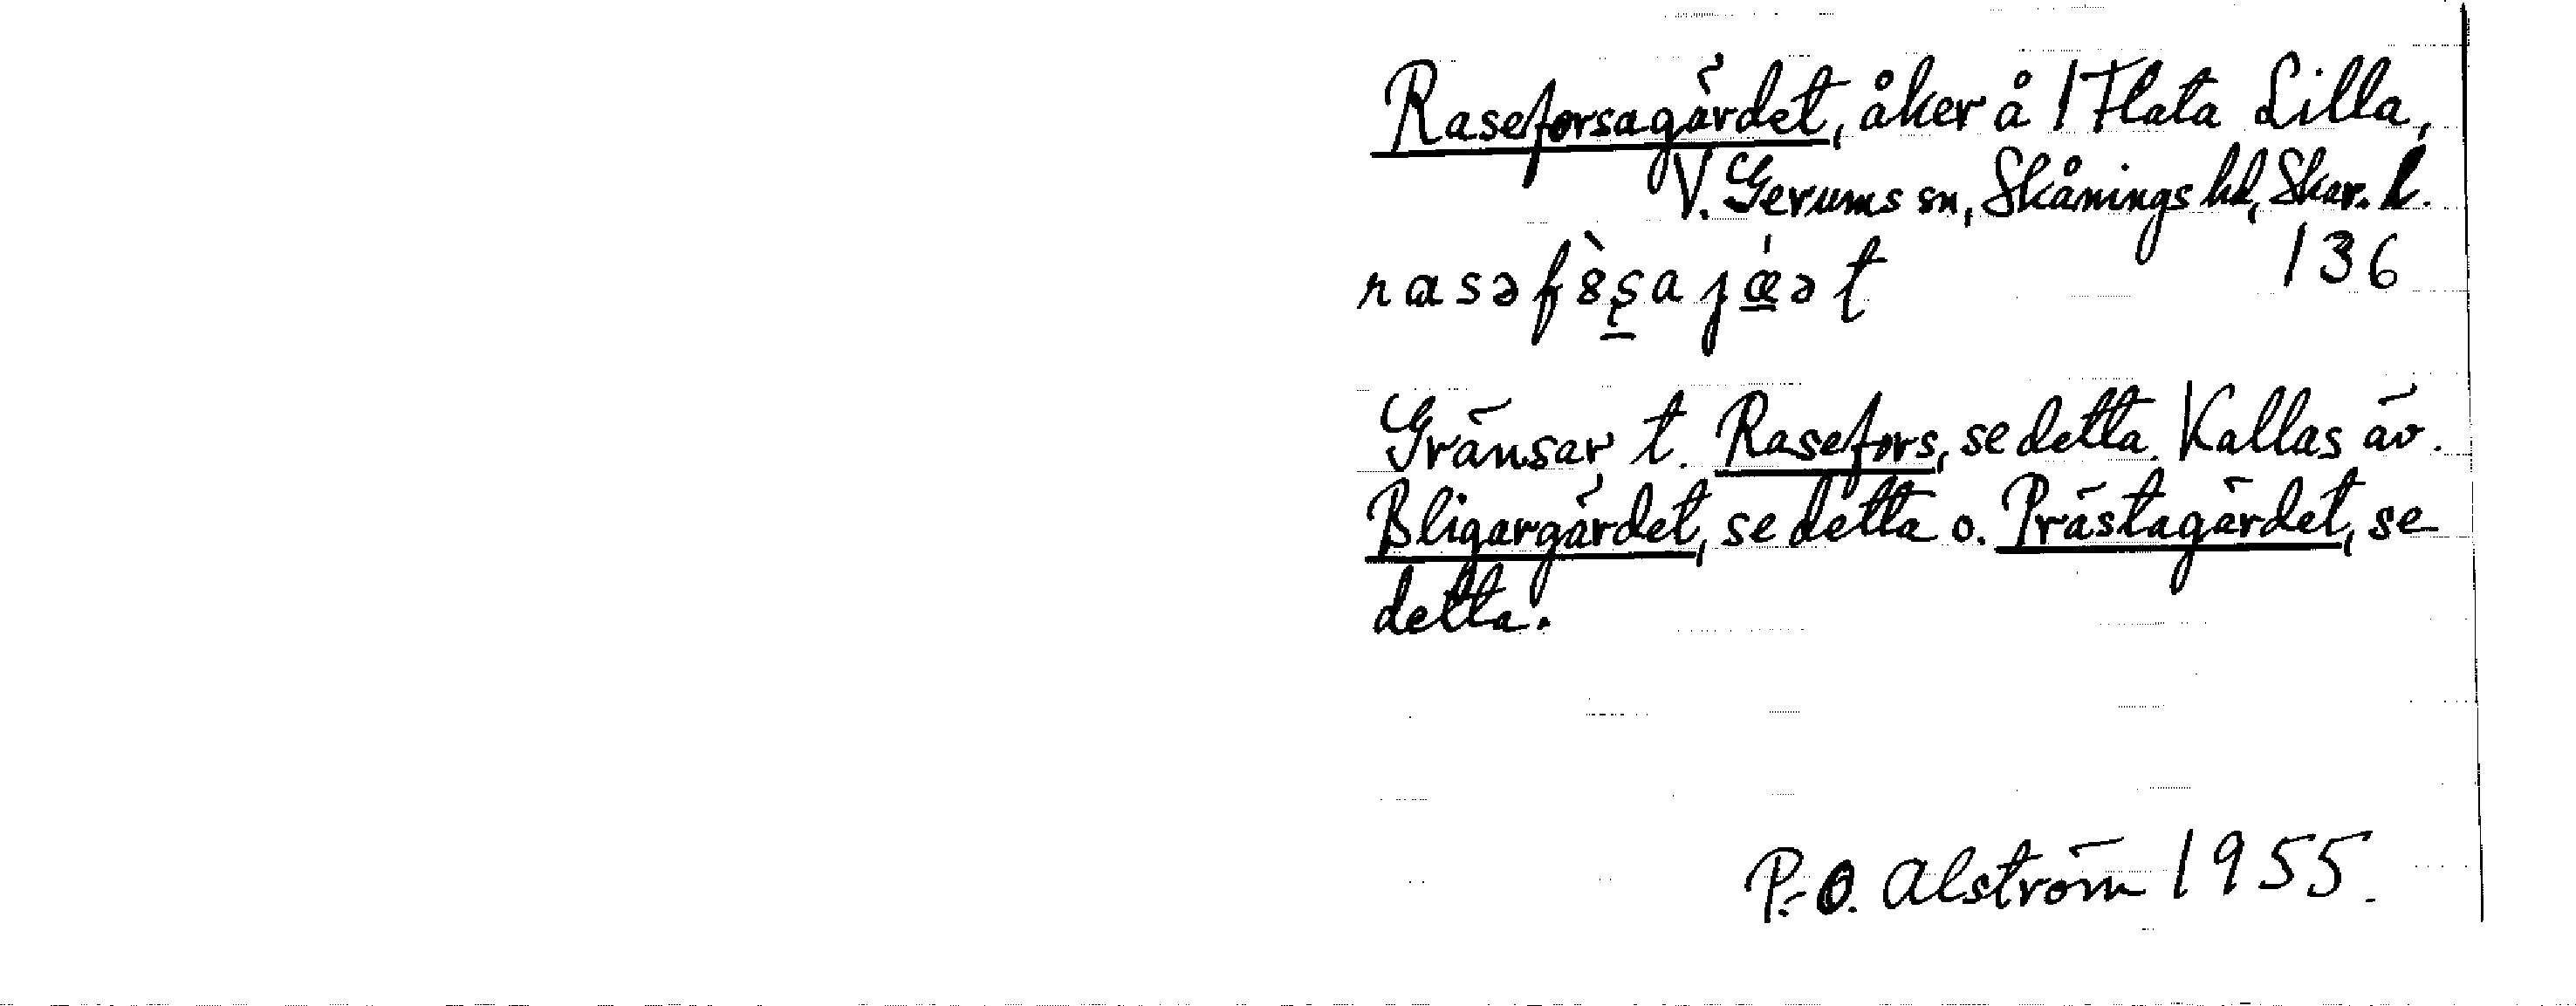 Raseforsagärdet, åker å 1 Flata Lilla,
V. Gerums sn, Skånings hd, Skar. l.
136
rasəfȣ̀s̨ajǽət
Gränsar t. Rasefors, se detta. Kallas äv.
Bligargärdet, se detta o. Prästagärdet, se
detta.
P.-O. Alström 1955.